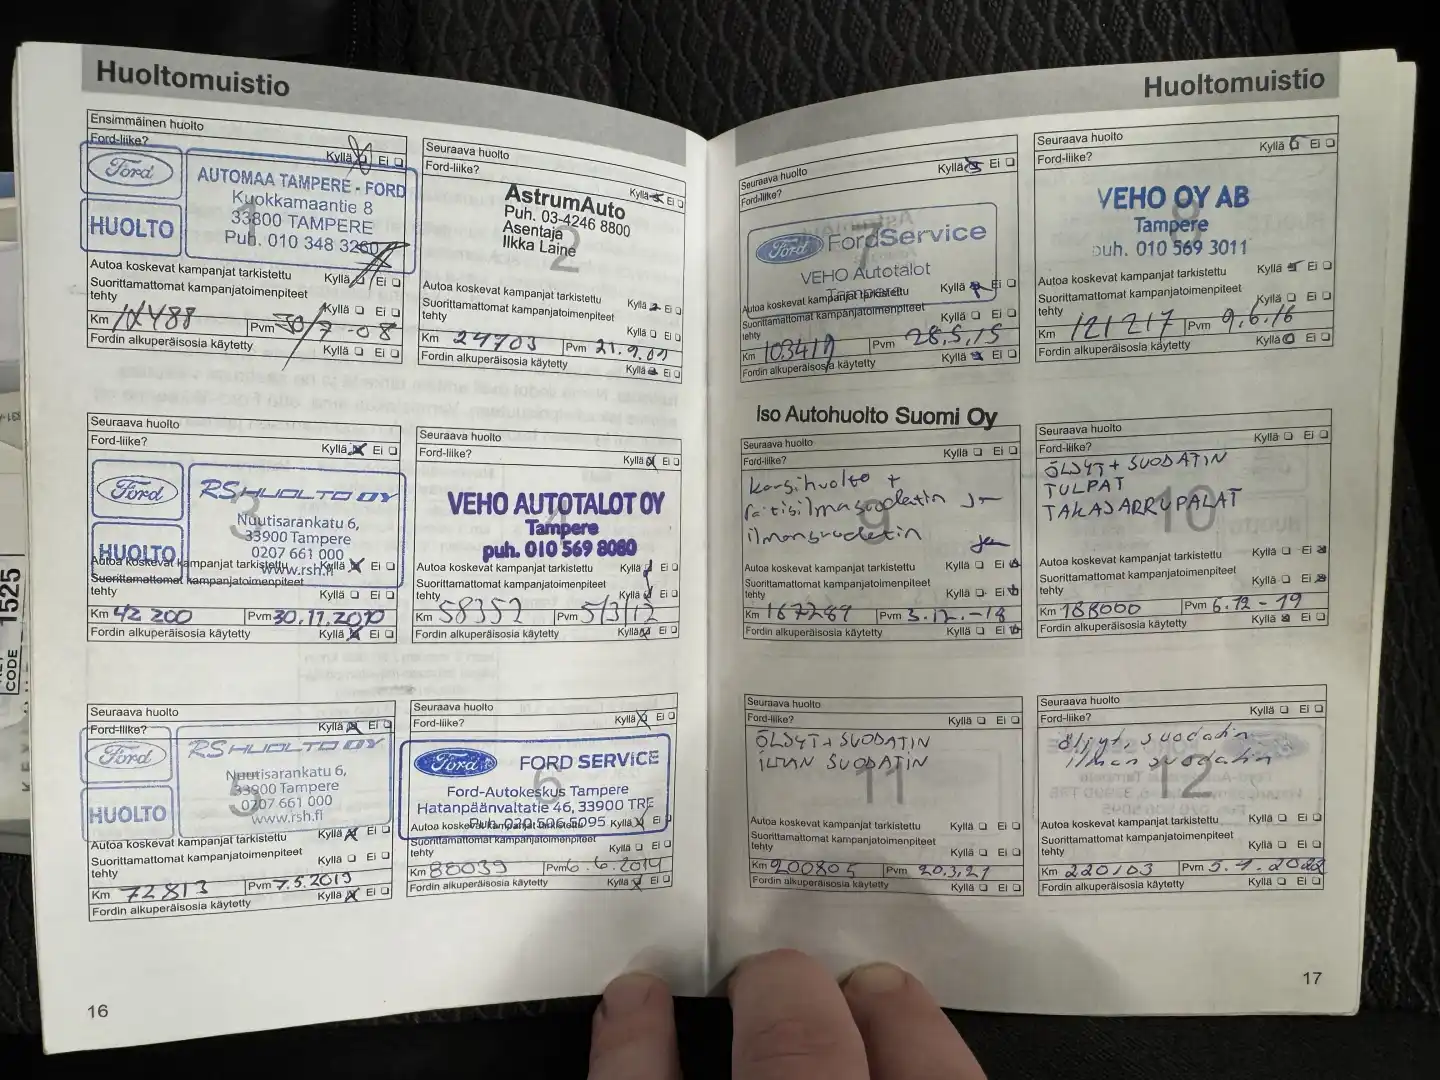 Huoltomuistio
Ensimmäinen huolto
Ford-liike?
Kyllä Ei
Ford
HUOLTO
AUTOMAA TAMPERE - FORD
Kuokkamaantie 8
33800 TAMPERE
Puh. 010 348 3260
1
Autoa koskevat kampanjat tarkistettu
Kyllä Ei
Suorittamattomat kampanjatoimenpiteet
tehty
Kyllä Ei
Km
Pvm 30/7 -08
Fordin alkuperäisosia käytetty
Kyllä Ei
Seuraava huolto
Ford-liike?
Kyllä Ei
AstrumAuto
Puh. 03-4246 8800
Asentaja
Ilkka Laine
2
Autoa koskevat kampanjat tarkistettu
Kyllä Ei
Suorittamattomat kampanjatoimenpiteet
tehty
Kyllä Ei
Km 24703 Pvm 21.9.09
Fordin alkuperäisosia käytetty
Kyllä Ei
Seuraava huolto
Ford-liike?
Kyllä Ei
Ford
HUOLTO
RS HUOLTO OY
Nuutisarankatu 6,
33900 Tampere
0207 661 000
www.rsh.fi
3
Autoa koskevat kampanjat tarkistettu
Kyllä Ei
Suorittamattomat kampanjatoimenpiteet
tehty
Kyllä Ei
Km 42 200 Pvm 30.11.2010
Fordin alkuperäisosia käytetty
Kyllä Ei
Seuraava huolto
Ford-liike?
Kyllä Ei
VEHO AUTOTALOT OY
Tampere
puh. 010 569 8080
4
Autoa koskevat kampanjat tarkistettu
Kyllä Ei
Suorittamattomat kampanjatoimenpiteet
tehty
Kyllä Ei
Km 58352 Pvm 5/3/12
Fordin alkuperäisosia käytetty
Kyllä Ei
Seuraava huolto
Ford-liike?
Kyllä Ei
Ford
HUOLTO
RS HUOLTO OY
Nuutisarankatu 6,
33900 Tampere
0207 661 000
www.rsh.fi
5
Autoa koskevat kampanjat tarkistettu
Kyllä Ei
Suorittamattomat kampanjatoimenpiteet
tehty
Kyllä Ei
Km 72813 Pvm 7.5.2013
Fordin alkuperäisosia käytetty
Kyllä Ei
Seuraava huolto
Ford-liike?
Kyllä Ei
Ford FORD SERVICE
Ford-Autokeskus Tampere
Hatanpäänvaltatie 46, 33900 TRE
Puh. 020 506 5095
6
Autoa koskevat kampanjat tarkistettu
Kyllä Ei
Suorittamattomat kampanjatoimenpiteet
tehty
Kyllä Ei
Km 88039 Pvm 6.6.2014
Fordin alkuperäisosia käytetty
Kyllä Ei
16
Huoltomuistio
Seuraava huolto
Ford-liike?
Kyllä Ei
Ford FordService
VEHO Autotalot
Tampere
7
Autoa koskevat kampanjat tarkistettu
Kyllä Ei
Suorittamattomat kampanjatoimenpiteet
tehty
Kyllä Ei
Km 103419 Pvm 28.5.15
Fordin alkuperäisosia käytetty
Kyllä Ei
Seuraava huolto
Ford-liike?
Kyllä Ei
VEHO OY AB
Tampere
puh. 010 569 3011
8
Autoa koskevat kampanjat tarkistettu
Kyllä Ei
Suorittamattomat kampanjatoimenpiteet
tehty
Kyllä Ei
Km 121217 Pvm 9.6.16
Fordin alkuperäisosia käytetty
Kyllä Ei
Iso Autohuolto Suomi Oy
Seuraava huolto
Ford-liike?
Kyllä Ei
Korsihuolto +
raitisilmasuodatin
ilmansuodatin
9
Autoa koskevat kampanjat tarkistettu
Kyllä Ei
Suorittamattomat kampanjatoimenpiteet
tehty
Kyllä Ei
Km 167289 Pvm 3.12.-18
Fordin alkuperäisosia käytetty
Kyllä Ei
Seuraava huolto
Ford-liike?
Kyllä Ei
ÖLJYT + SUODATIN
TULPAT
TAKAJARRUPALAT
10
Autoa koskevat kampanjat tarkistettu
Kyllä Ei
Suorittamattomat kampanjatoimenpiteet
tehty
Kyllä Ei
Km 188000 Pvm 6.12-19
Fordin alkuperäisosia käytetty
Kyllä Ei
Seuraava huolto
Ford-liike?
Kyllä Ei
ÖLJYT + SUODATIN
ILMAN SUODATIN
11
Autoa koskevat kampanjat tarkistettu
Kyllä Ei
Suorittamattomat kampanjatoimenpiteet
tehty
Kyllä Ei
Km 200805 Pvm 20.3.21
Fordin alkuperäisosia käytetty
Kyllä Ei
Seuraava huolto
Ford-liike?
Kyllä Ei
Öljyt, suodatin
ilman suodatin
12
Autoa koskevat kampanjat tarkistettu
Kyllä Ei
Suorittamattomat kampanjatoimenpiteet
tehty
Kyllä Ei
Km 220103 Pvm
Fordin alkuperäisosia käytetty
Kyllä Ei
17
CODE 1525